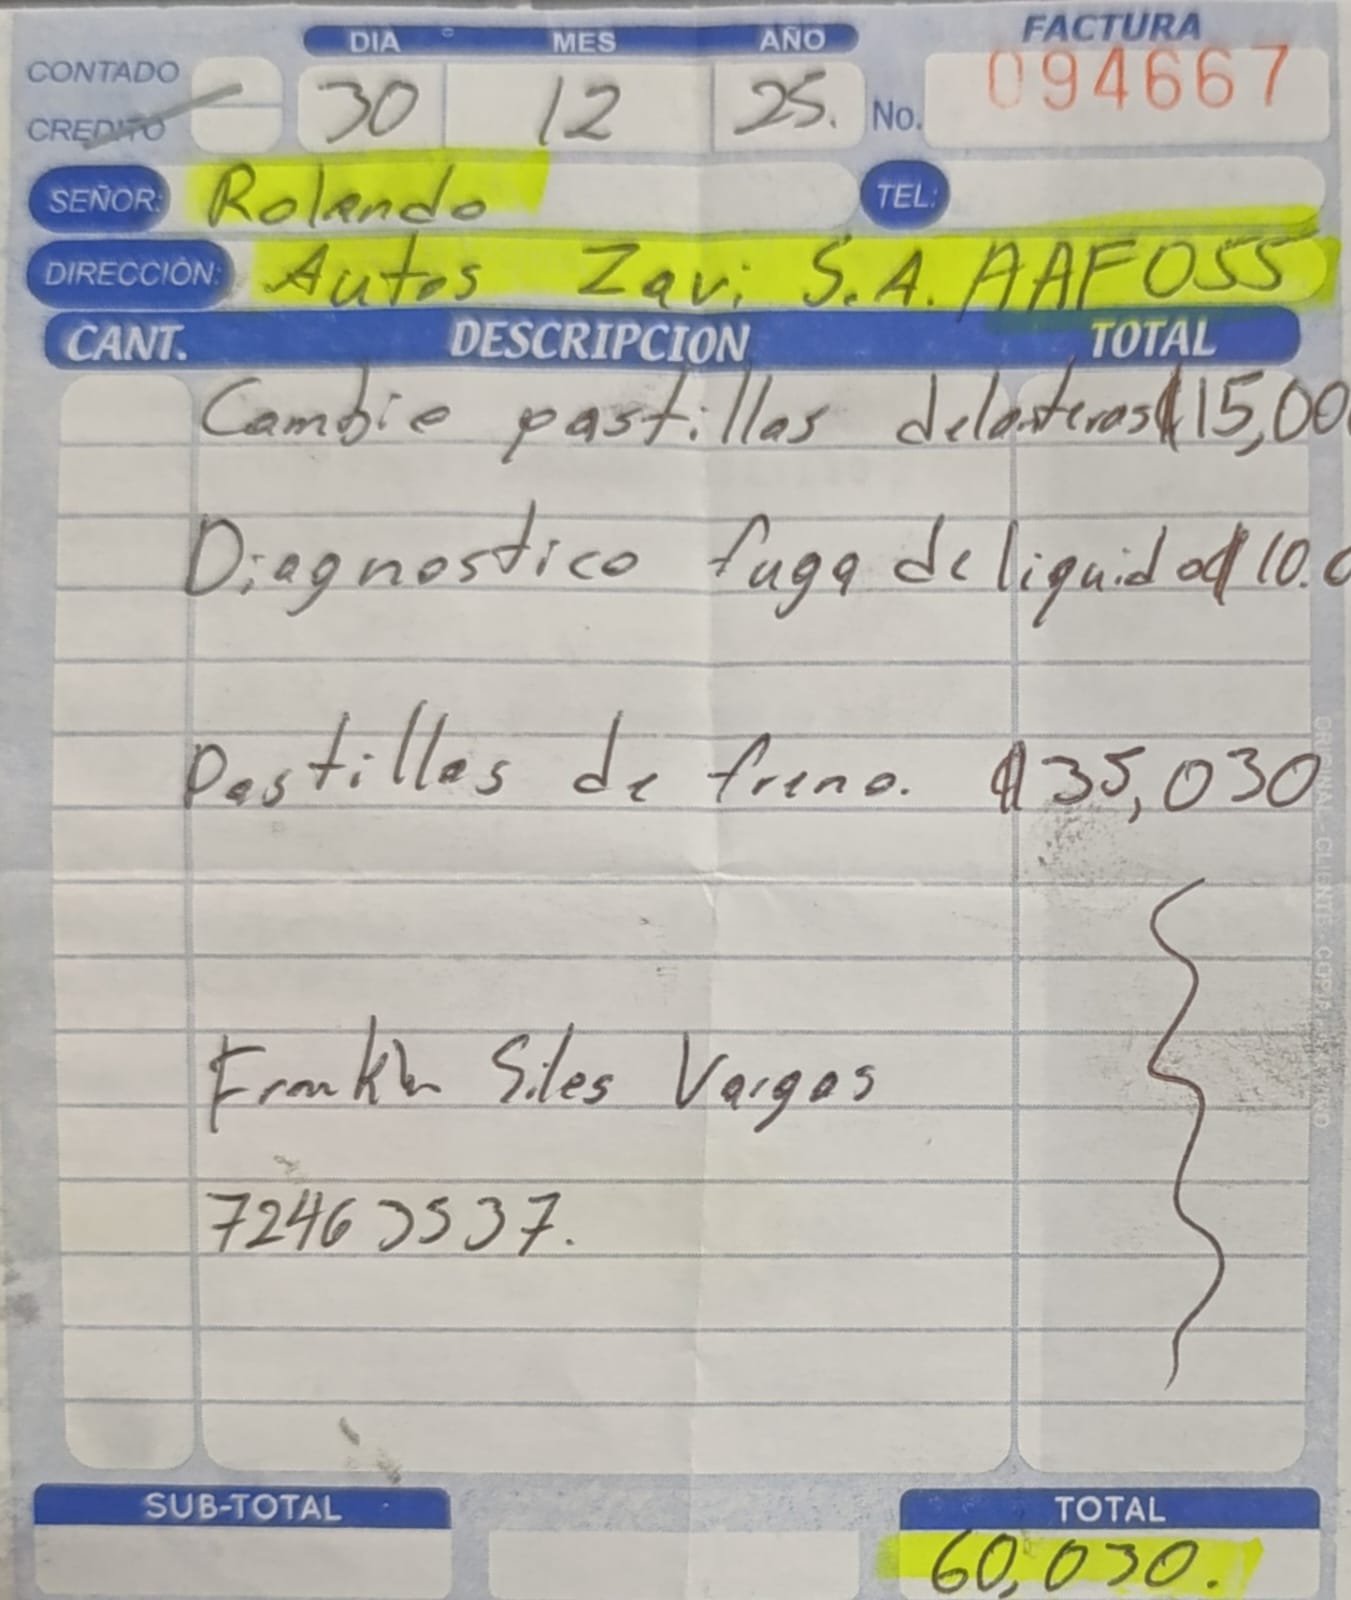 DIA MES AÑO FACTURA
CONTADO
CREDITO 30 12 25. No. 094667
SEÑOR: Rolando TEL:
DIRECCIÓN: Autos Zavi S.A. AAF055
CANT. DESCRIPCION TOTAL
Cambio pastillas delanteras ₡15,00
Diagnostico fuga de liquido ₡10.0
Pastillas de freno. ₡35,030
Franklin Siles Vargas
72463537.
SUB-TOTAL TOTAL
60,030.
ORIGINAL - CLIENTE COPIA